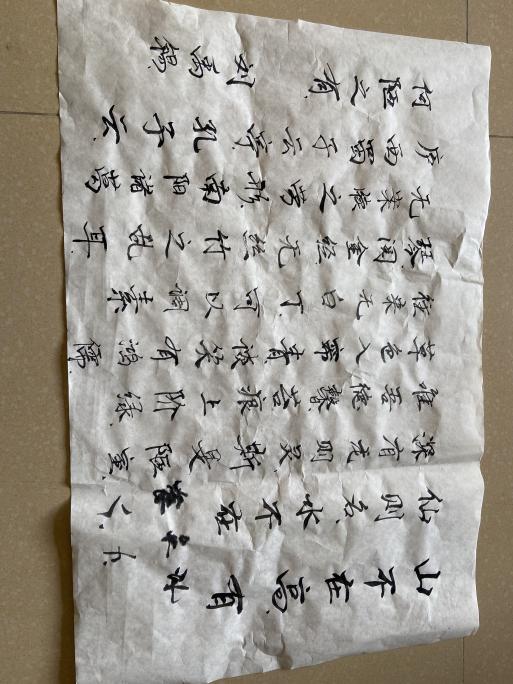 山不在高有
仙则名水不在
深有龙则灵斯是陋室
惟吾德馨苔痕上阶绿
草色入帘青谈笑有鸿儒
往来无白丁可以调素
琴阅金经无丝竹之乱耳
无案牍之劳形南阳诸葛
庐西蜀子云亭孔子云
何陋之有 刘禹锡